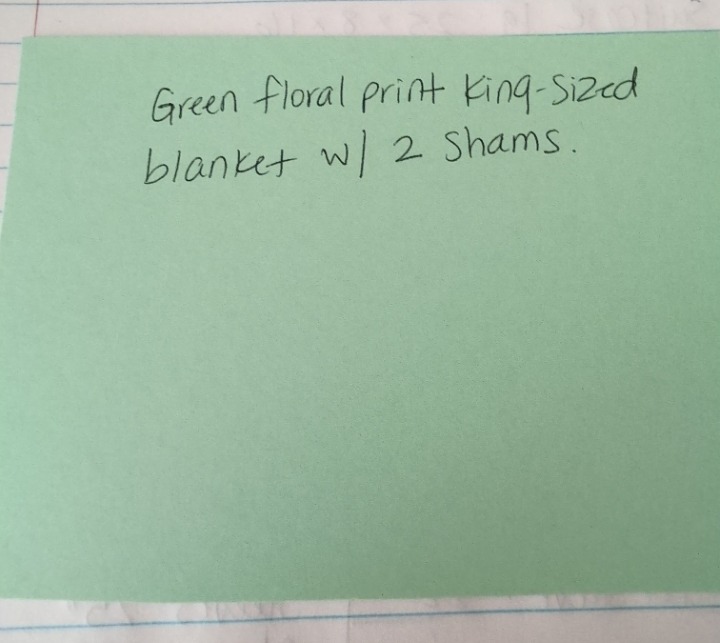 Green floral print King-Sized
blanket w/ 2 Shams.